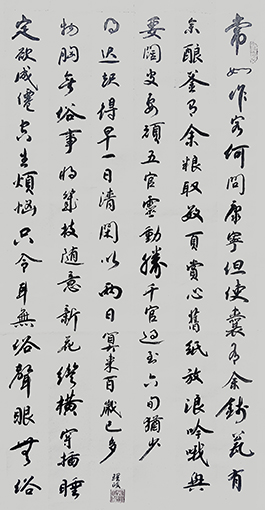 常如作客何問康寧但使囊有余錢甕有
余釀釜有余糧取數頁賞心舊紙放浪吟哦興
要闊皮要頑五官靈動勝千官過至六旬猶少
定欲成僊空生煩惱只令耳無俗聲眼無俗
物胸無俗事將幾枝隨意新花縱橫穿插睡
得遲起得早一日清閑似兩日算來百歲已多